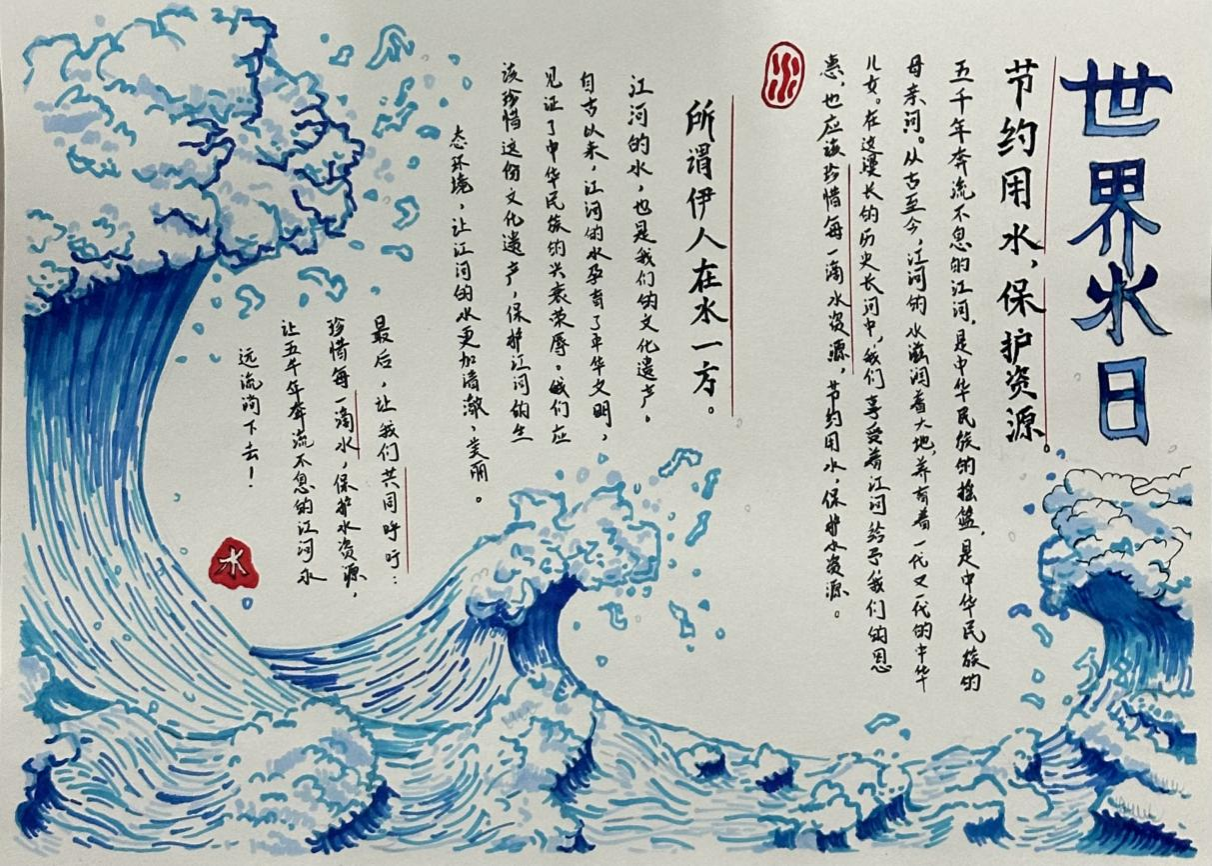 世界水日
节约用水，保护资源。
五千年奔流不息的江河，是中华民族的摇篮，是中华民族的
母亲河。从古至今，江河的水滋润着大地，养育着一代又一代的中华
儿女。在这漫长的历史长河中，我们享受着江河给予我们的恩
惠，也应该珍惜每一滴水资源，节约用水，保护水资源。
所谓伊人在水一方。
江河的水，也是我们的文化遗产。
自古以来，江河的水孕育了中华文明，
见证了中华民族的兴衰荣辱。我们应
该珍惜这份文化遗产，保护江河的生
态环境，让江河的水更加清澈，美丽。
最后，让我们共同呼吁：
珍惜每一滴水，保护水资源，
让五千年奔流不息的江河水
远流淌下去！
水